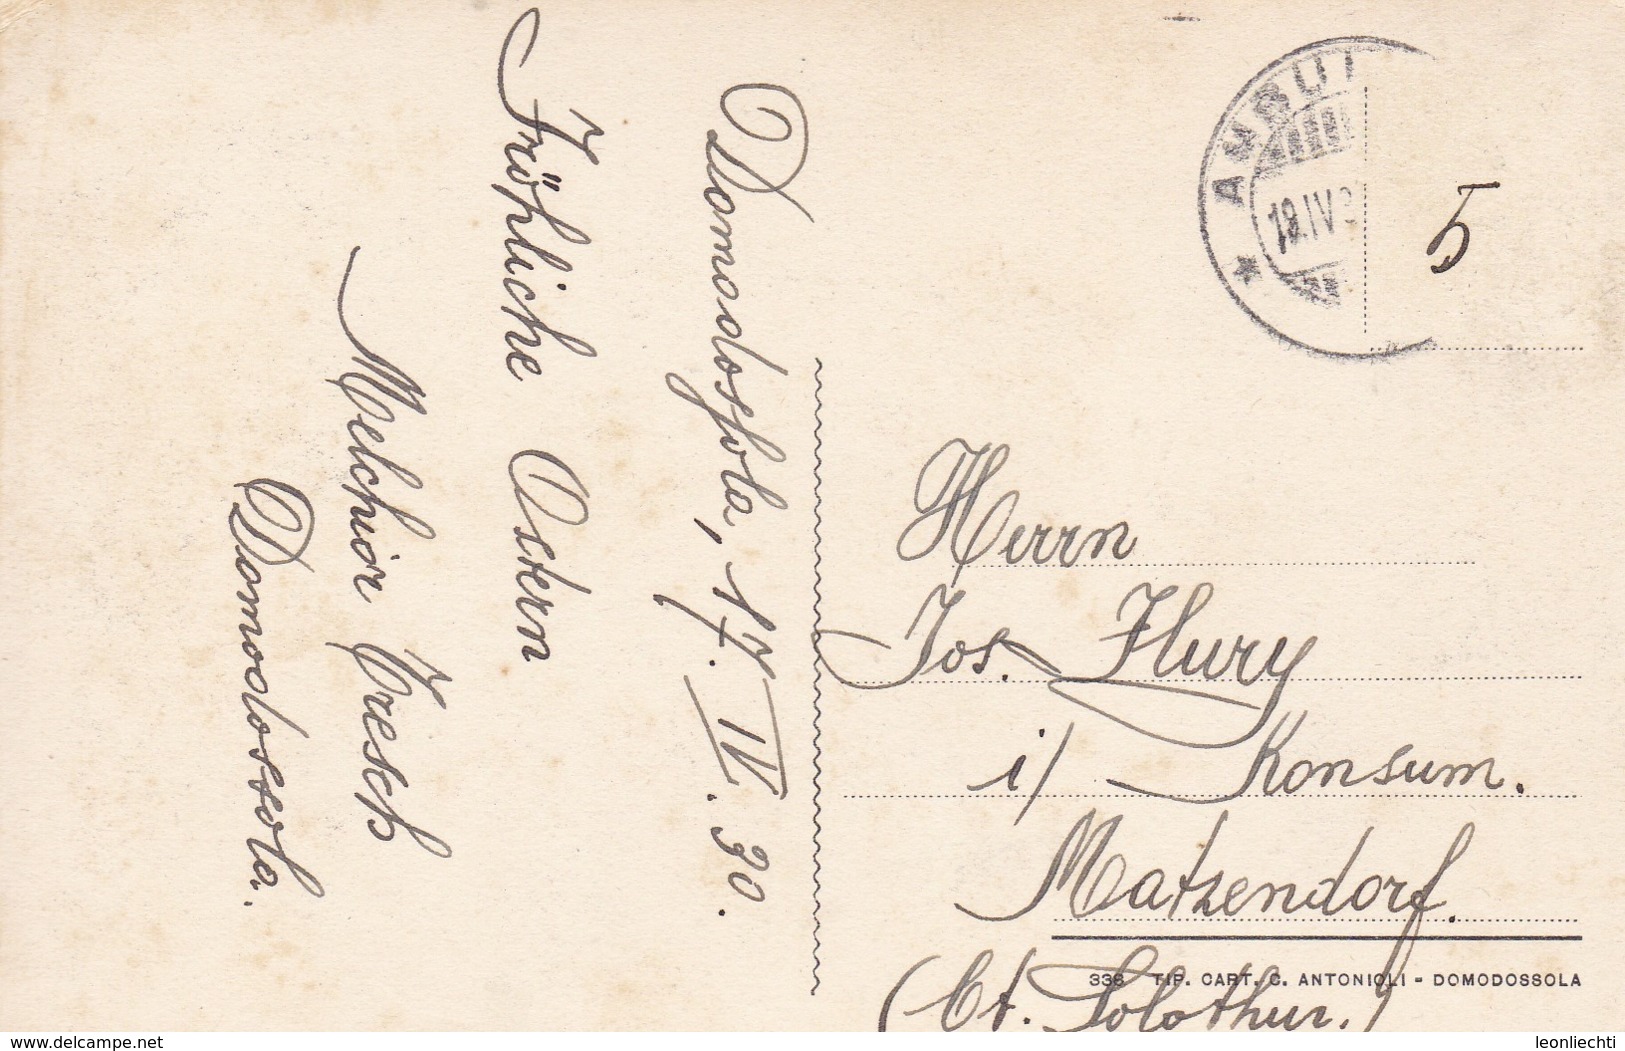 Domodossola, 17. IV. 30.
Fröhliche Ostern
Melchior Tresch
Domodossola.
AMBULA
19.IV
5
Herrn
Jos. Flury
i/ Konsum.
Matzendorf.
(Ct. Solothur.)
336 TIP. CART. C. ANTONIOLI - DOMODOSSOLA
www.delcampe.net
leonliechti